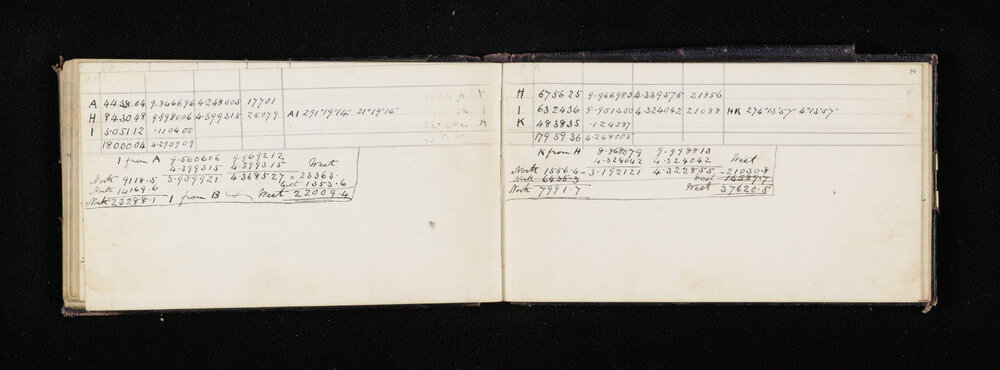 A 44.38.04 9.846696 4.248005 17701
H 84.30.48 9.998006 4.399315 25079 AI 291°19'14" 21°19'14"
I 5.05.1.12 .110400
180.00.04 4.290909
I from A 9.560606 9.969212
4.399315 4.399315 West
North 9118.5 3.959921 4.368527 = 23363.
North 14169.6 1353.6
North 23288.1 I from B West 22009.4
74
H 67.56.25 9.966983 4.339575 21856
I 63.24.36 9.951450 4.324042 21088 HK 274°13'57" 4°13'57"
K 48.38.35 .124587
179.59.36 4.248005
K from H 8.868079 9.998813
4.324042 4.324042 West
North 1556.4 = 3.192121 4.322855 = 21030.8
North 6435.3 West 16589.7
North 7991.7 West 37620.5